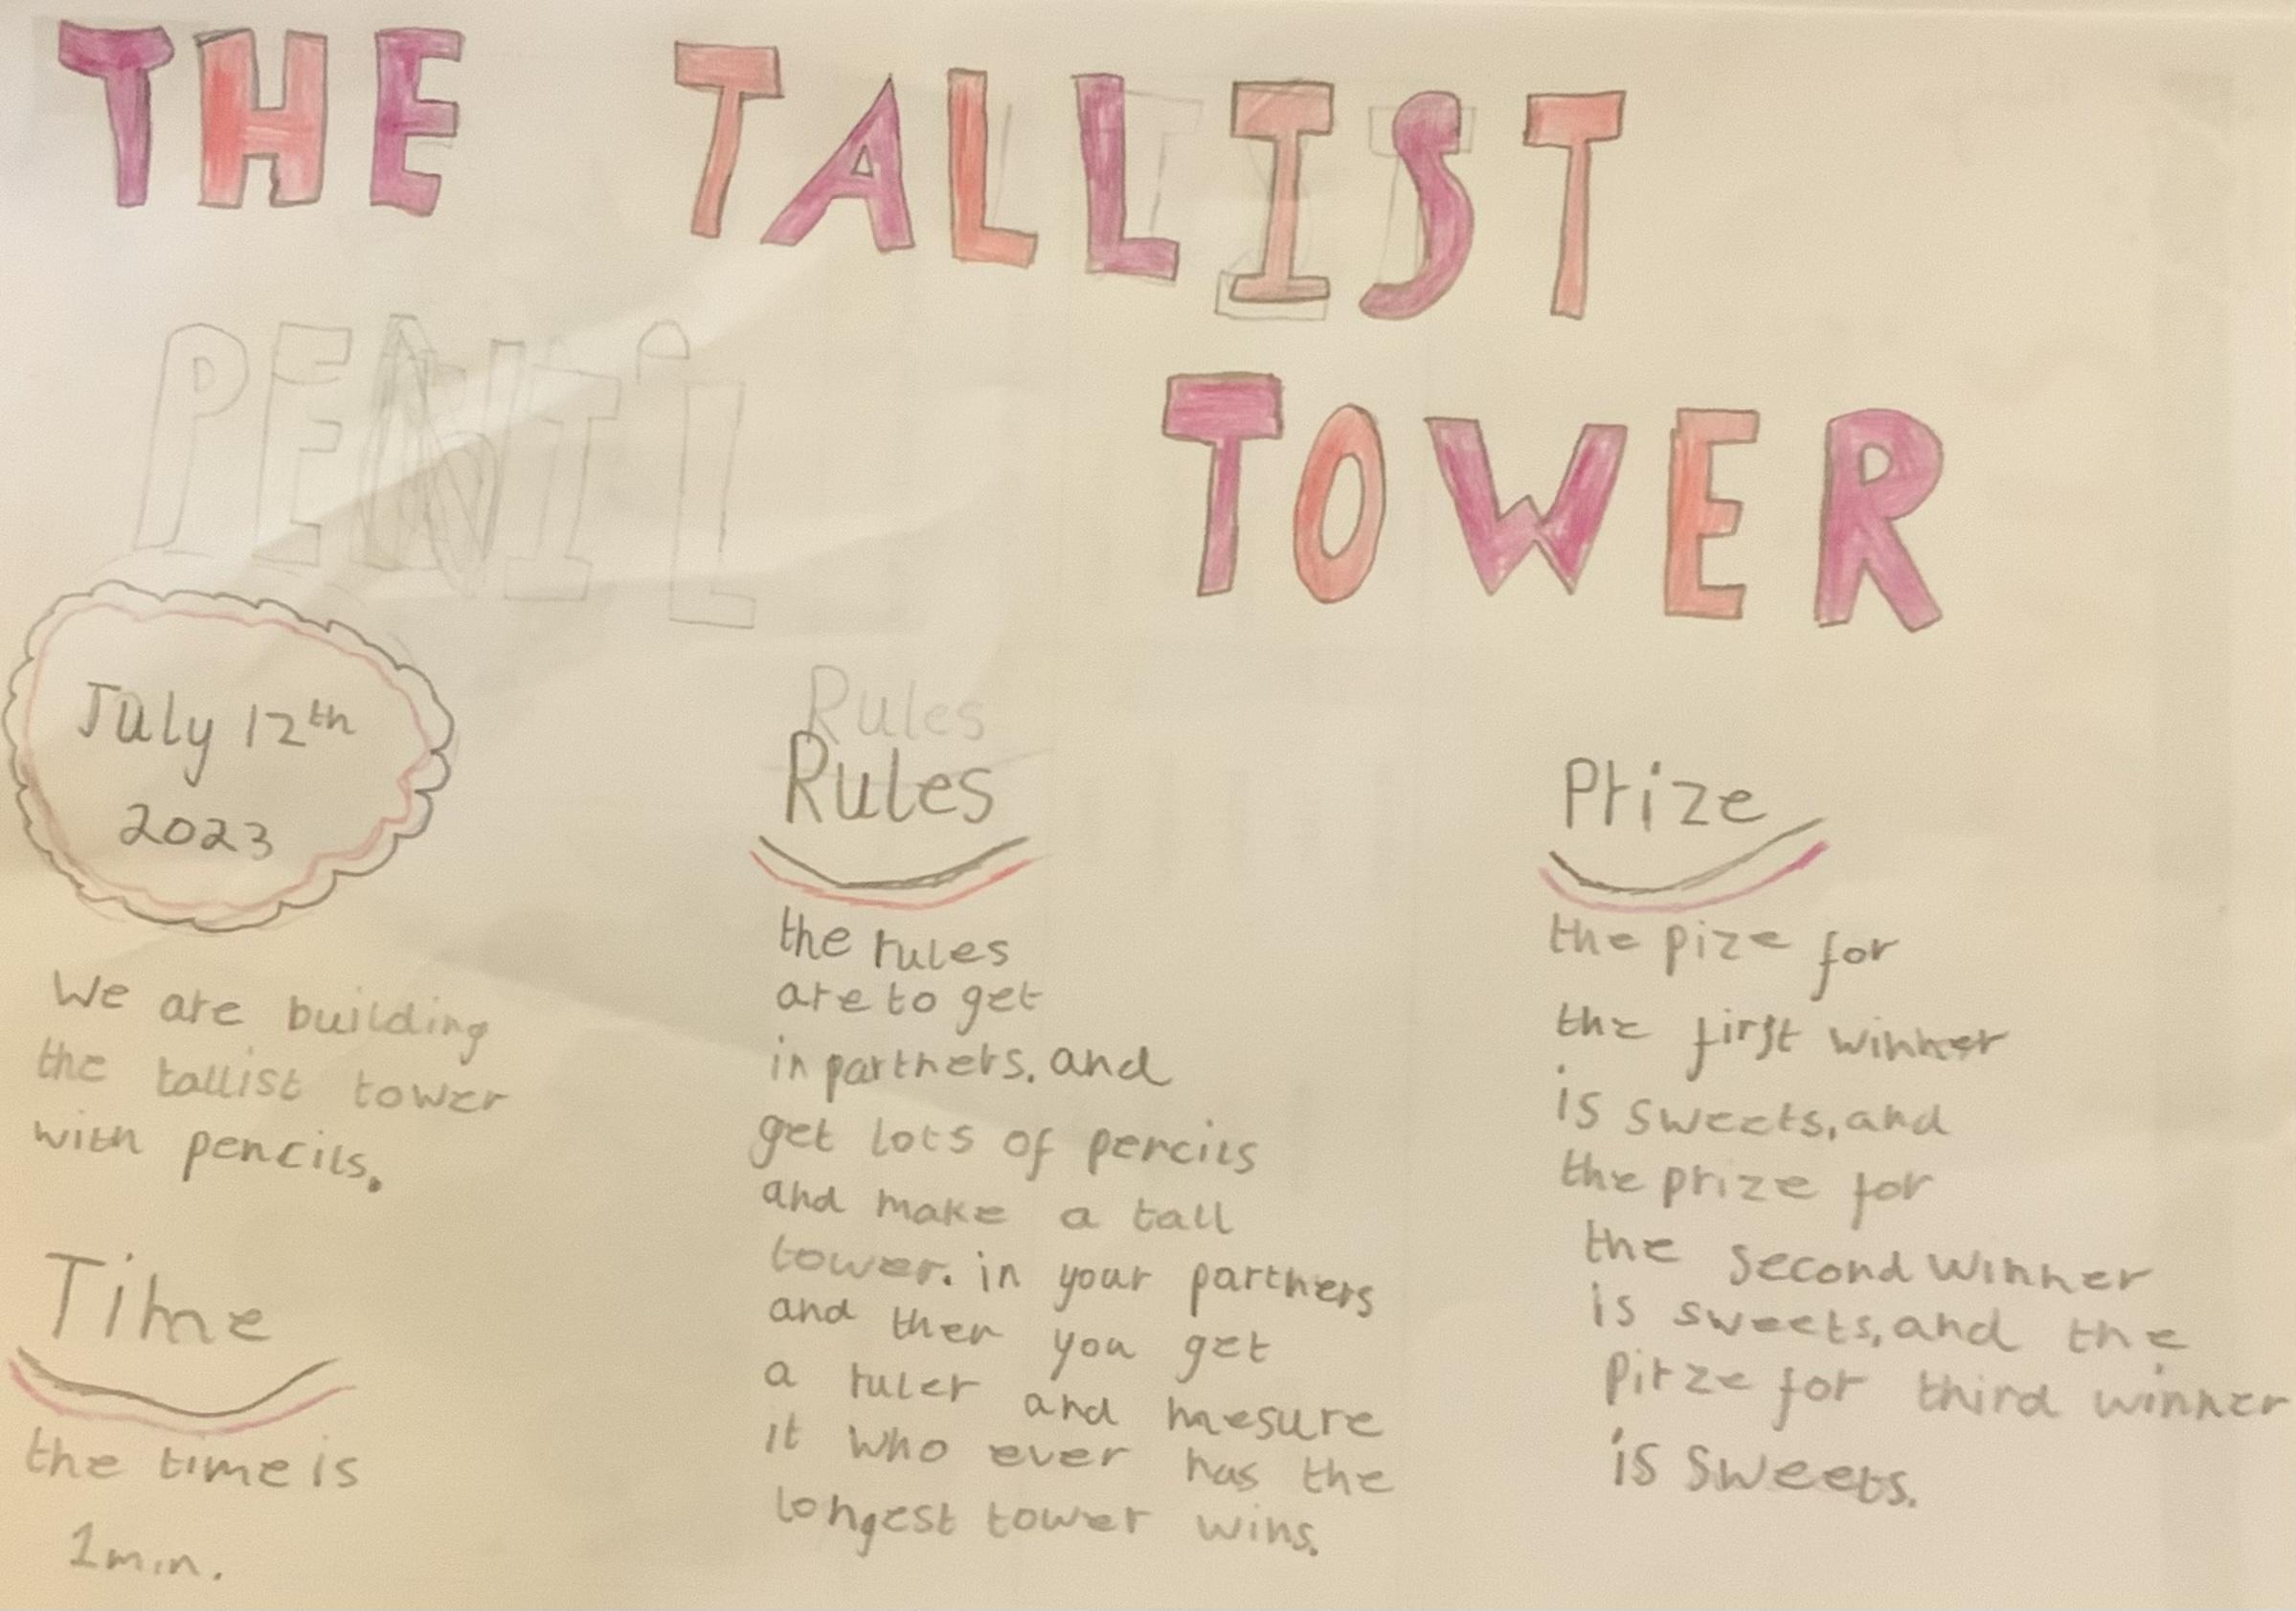 THE TALLIST
TOWER
PENIL
July 12th
2023
We are building
the tallist tower
with pencils.
Time
the time is
1 min.
Rules
Rules
the rules
are to get
in partners. and
get lots of pencils
and make a tall
tower. in your partners
and then you get
a ruler and mesure
it who ever has the
longest tower wins.
Prize
the pize for
the first winner
is sweets, and
the prize for
the second winner
is sweets, and the
pirze for third winner
is sweets.